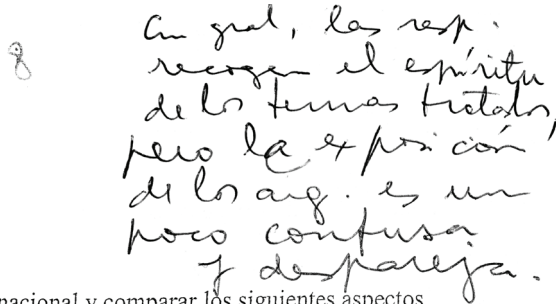 8
En gral, las resp.
recogen el espíritu
de los temas tratados,
pero la exposición
de los arg. es un
poco confusa
y despareja.
nacional y comparar los siguientes aspectos